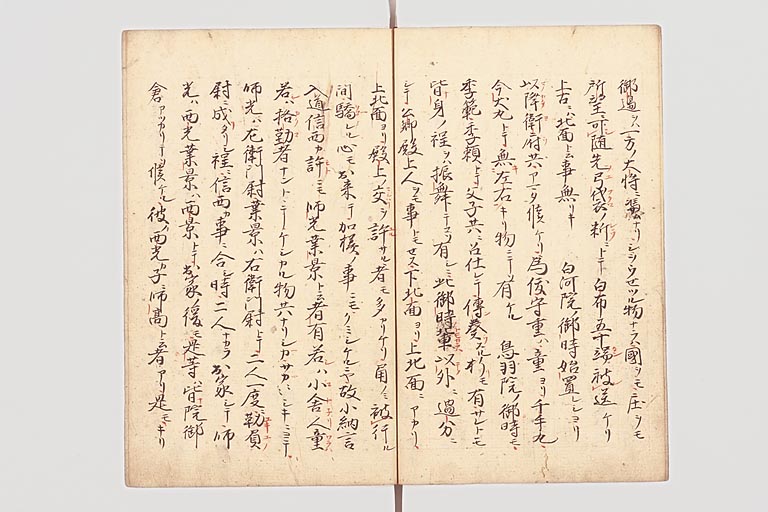 御邊ヲハ一方ノ大将ニ憑ナリシヲウセツル物ナラス國ヲモ庄ヲモ
所望ニ可随先弓袋ノ新ニトテ白布五十端被送ケリ
上古ニハ北面ト云事無リキ 白河院ノ御時始置レシヨリ
以降衛府共アマタ候ケリ為俊守重ハ童ヨリ千手丸
今犬丸トテ無左右キリ物ニテ有ケル 鳥羽院ノ御時モ
季範季頼トテ父子共ニ召仕レテ傳奏スル折モ有シトモ
皆身ノ程ヲハ振舞テコソ有シニ此御時軰以外ニ過分ニ
シテ公卿殿上人ヲモ事トモセス下北面ヨリ上北面ニアカリ
上北面ヨリ殿上ノ交ヲ許サル者モ多カリケリ角ノミ被行ル
間驕レル心モ出来テ加様ノ事ニモクミシケルニヤ故小納言
入道信西カ許ニモ師光業景ト云者有若ハ小舎人童
若ハ格勤者ナントニテケシカル物共ナリシカサカ〱シキニヨテ
師光ハ左衛門尉業景ハ右衛門尉トテ二人一度靱負
尉ニ成タリ程ニ信西カ事ニ合シ時二人ナカラ出家シテ師
光ハ西光業景ハ西景トテ出家ノ後モ是等皆院御
倉アツカリニテソ候ケル彼ノ西光カ子ニ師高ト云者アリ是モキリ